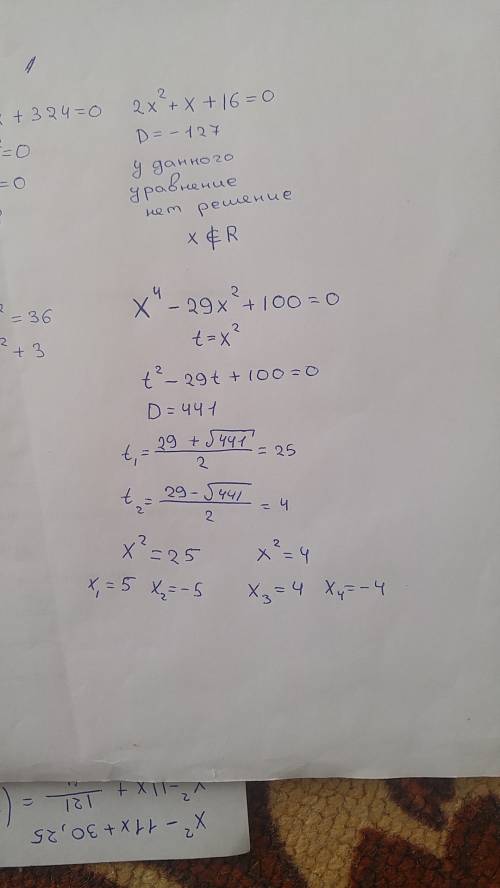 1
x + 324=0
2x² + x + 16 = 0
²=0
D = - 127
=0
у данного
уравнение
нет решение
x ∉ R
² = 36
² + 3
x⁴ - 29x² + 100 = 0
t = x²
t² - 29t + 100 = 0
D = 441
t₁ = (29 + √441)/2 = 25
t₂ = (29 - √441)/2 = 4
x² = 25 x² = 4
x₁ = 5 x₂ = -5 x₃ = 4 x₄ = -4
x² - 11x + 30,25
x² - 11x + 121/ = (